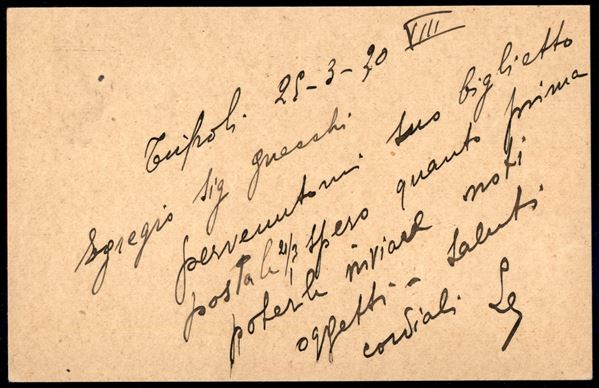 Tripoli. 25-3-30 VIII
Egregio sig Gnecchi
pervenutomi suo biglietto
postale 21/3 spero quanto prima
poterle inviare noti
oggetti - saluti
cordiali